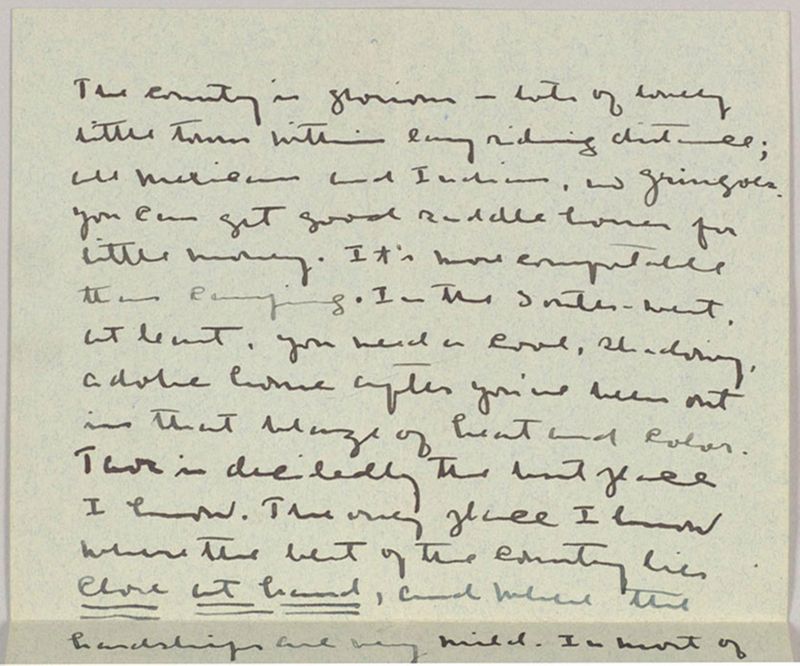 The country is glorious – lots of lovely
little towns within easy riding distance;
all Mexicans and Indians, no gringoes.
you can get good saddle horses for
little money. It's more comfortable
than camping. In the South-west,
at least, you need a cool, shadowy,
adobe house after you've been out
in that blaze of heat and color.
Taos is decidedly the best place
I know. The only place I know
where the best of the country lies
close at hand, and where the
hardships are very mild. In most of